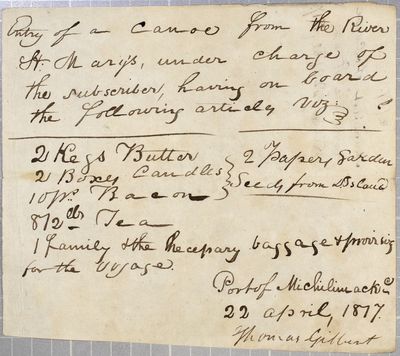 Entry of a canoe from the River
St. Marys, under charge of
the subscriber, having on board
the following articles viz.
2 Kegs Butter
2 Boxes Candles
10 ps. Bacon
2 Papers Garden
Seeds from
Tea
1 family & the Necessary baggage & provisions
for the voyage.
Port of Michilimackc.
22 april, 1817.
Thomas Gilbert